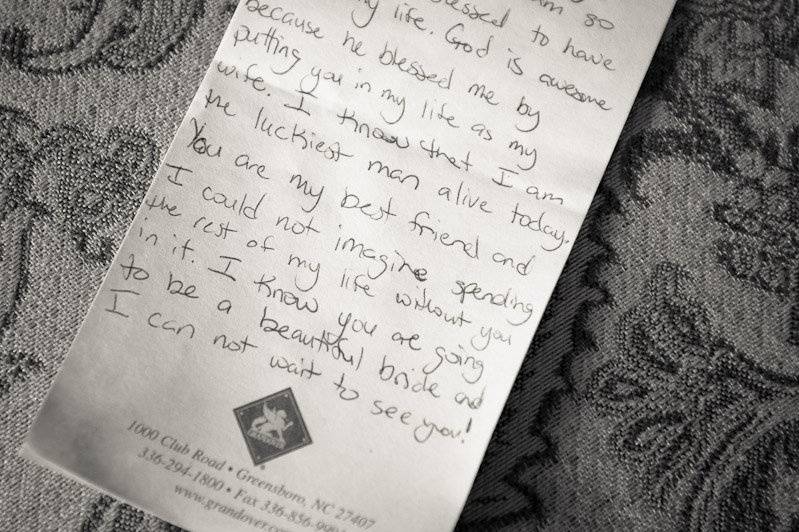 am so
blessed to have
my life. God is awesome
because he blessed me by
putting you in my life as my
wife. I know that I am
the luckiest man alive today.
You are my best friend and
I could not imagine spending
the rest of my life without you
in it. I know you are going
to be a beautiful bride and
I can not wait to see you!
1000 Club Road • Greensboro, NC 27407
336-294-1800 • Fax 336-856-99
www.grandover.co